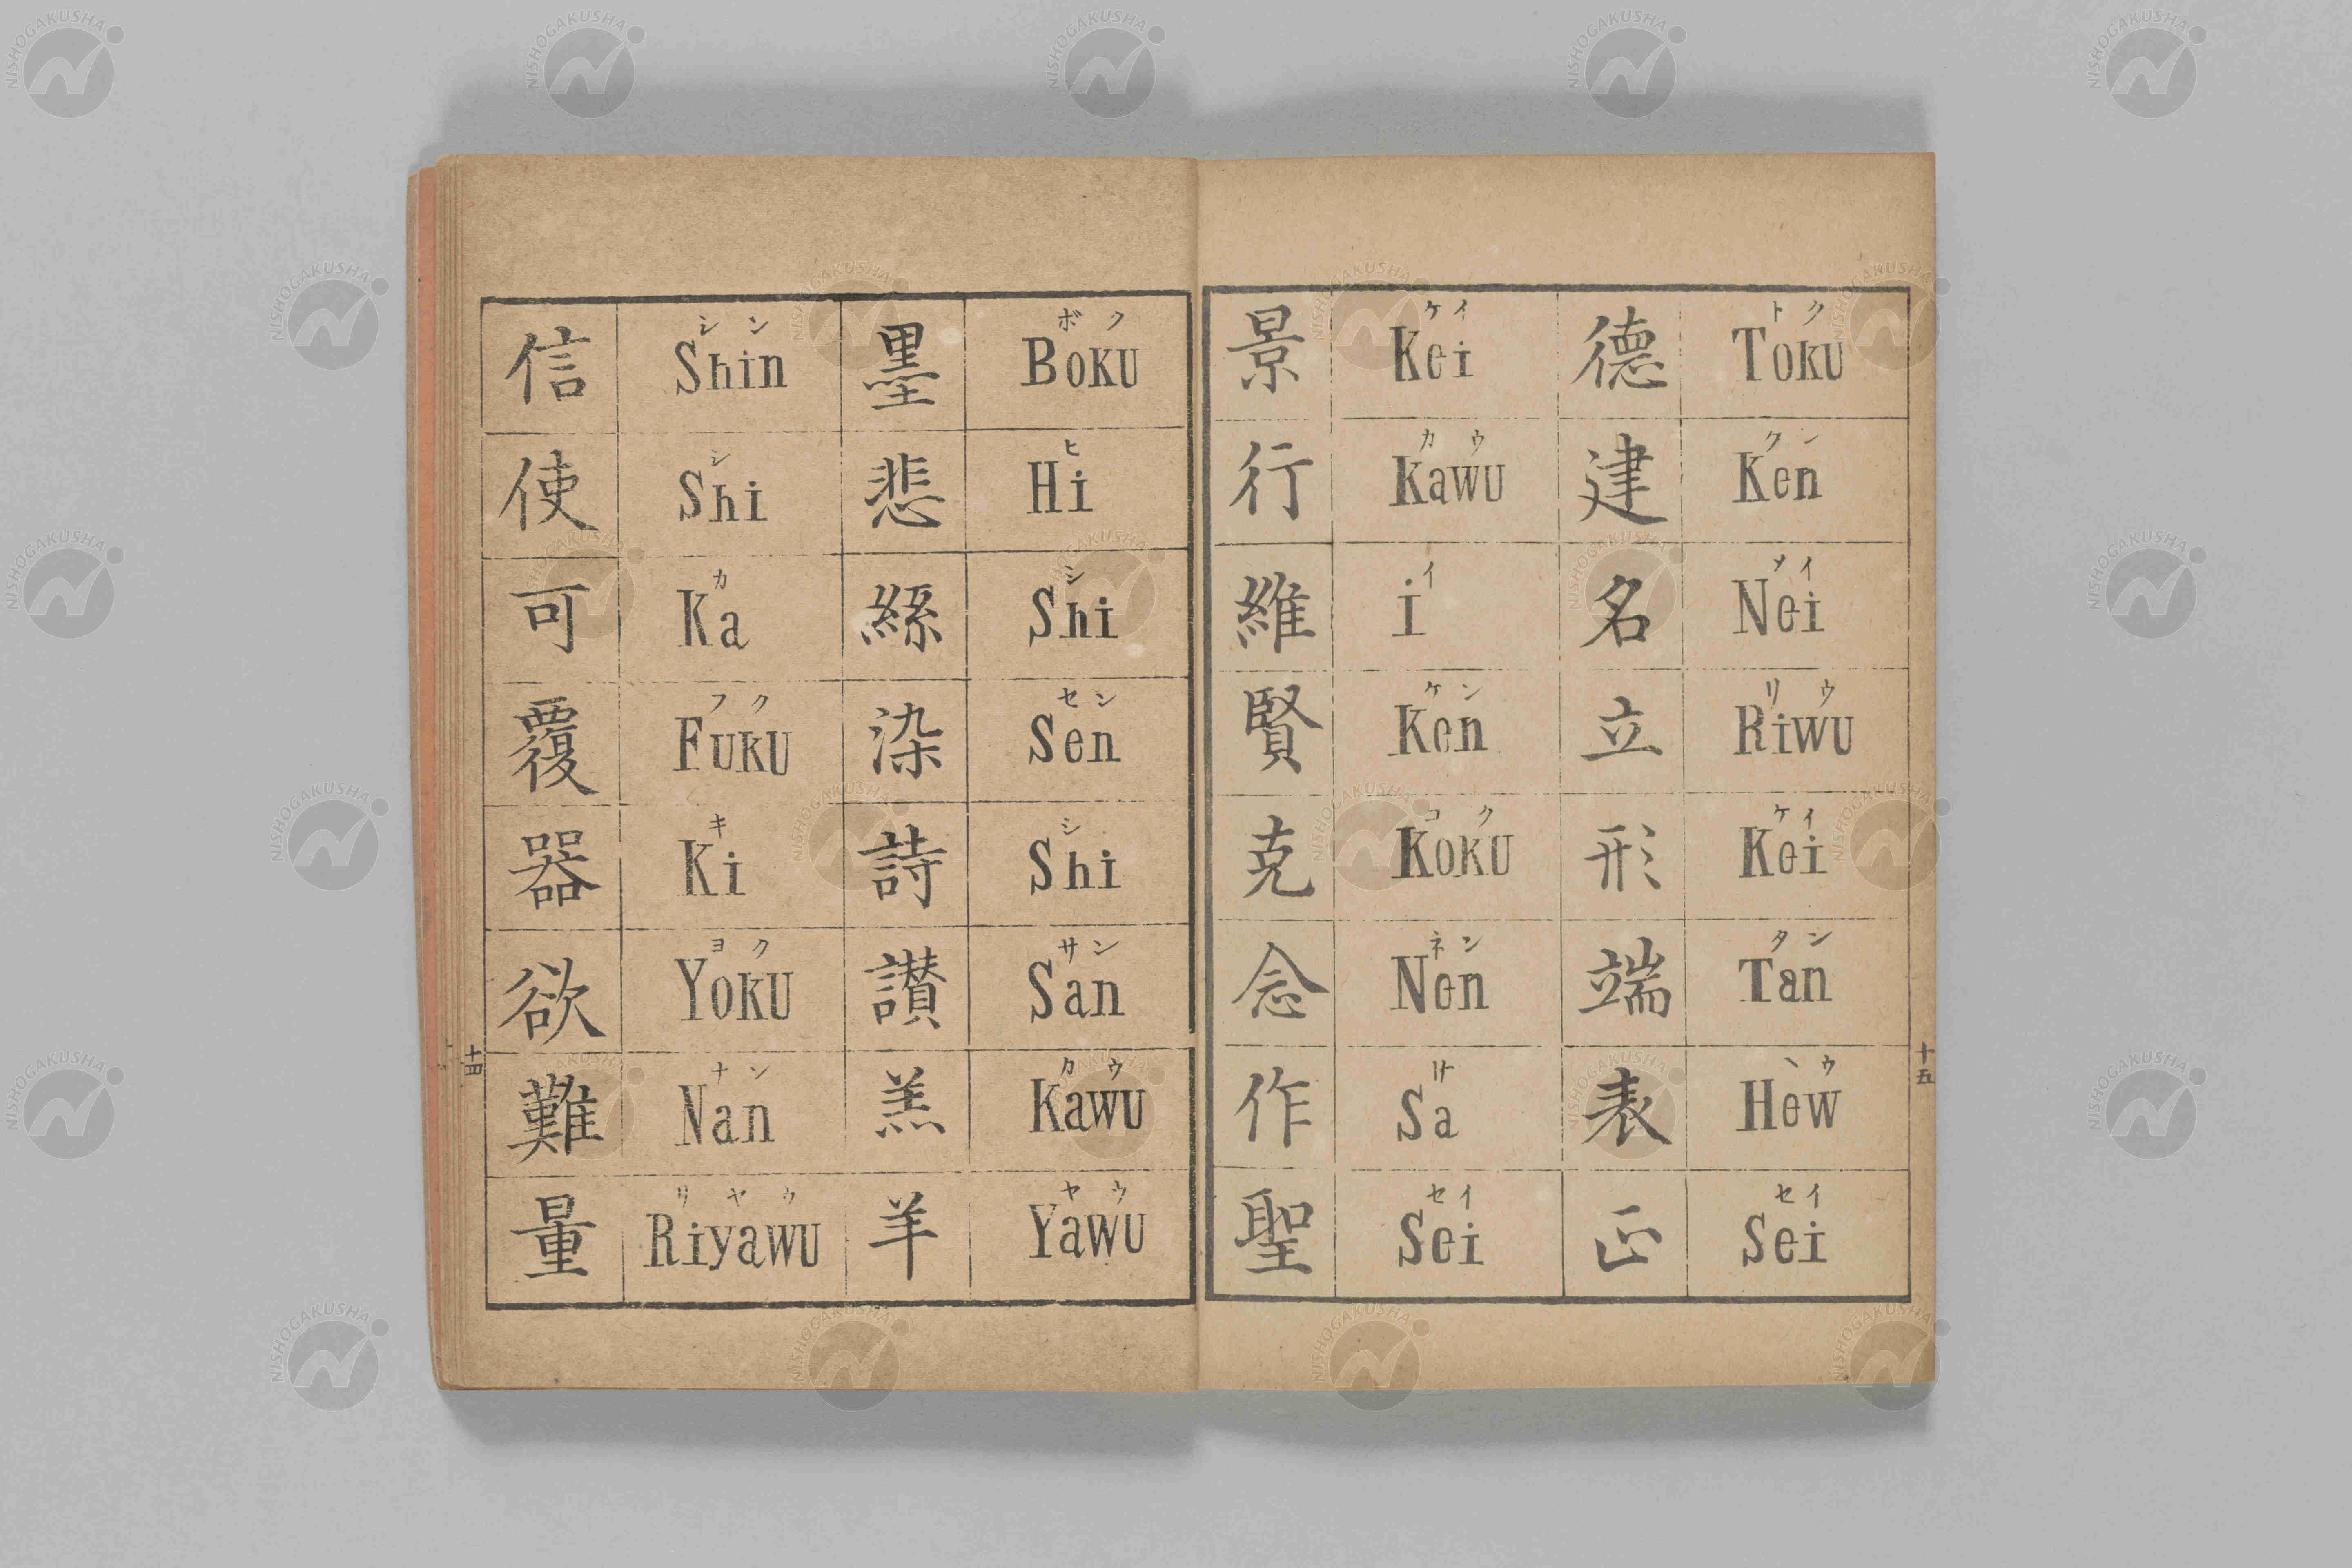 信 シン Shin
使 シ Shi
可 カ Ka
覆 フク Fuku
器 キ Ki
欲 ヨク Yoku
難 ナン Nan
量 リヤウ Riyawu
墨 ボク Boku
悲 ヒ Hi
絲 シ Shi
染 セン Sen
詩 シ Shi
讃 サン San
羔 カウ Kawu
羊 ヤウ Yawu
十四
景 ケイ Kei
行 カウ Kawu
維 イ i
賢 ケン Ken
克 コク Koku
念 ネン Nen
作 サ Sa
聖 セイ Sei
德 トク Toku
建 クン Ken
名 メイ Nei
立 リウ Riwu
形 ケイ Kei
端 タン Tan
表 ヘウ Hew
正 セイ Sei
十五
NISHOGAKUSHA